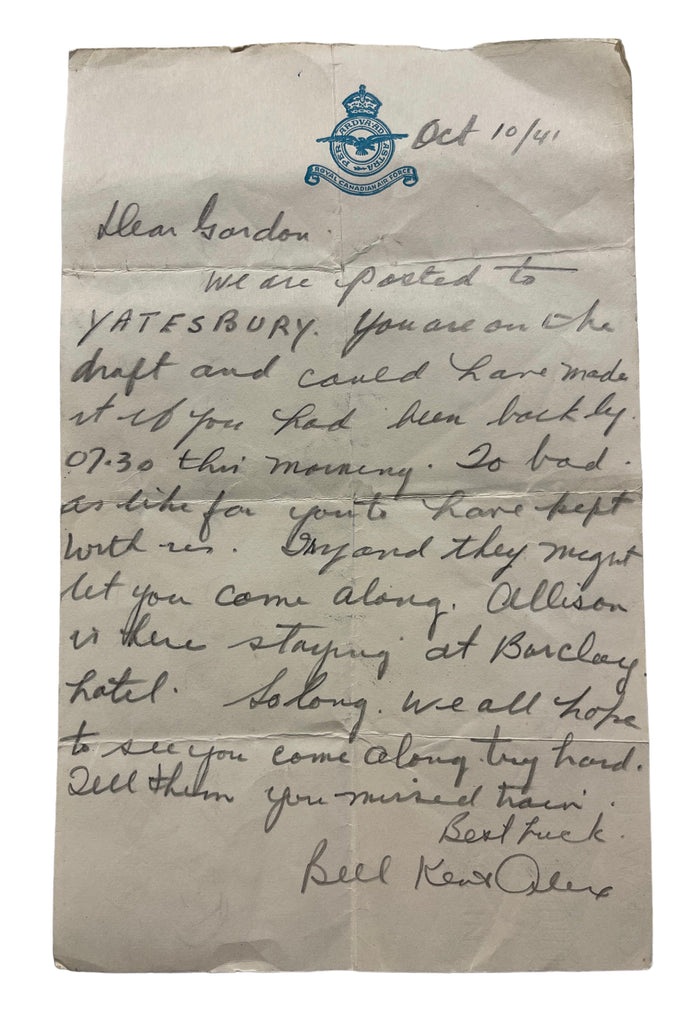 PER ARDUA AD ASTRA
ROYAL CANADIAN AIR FORCE
Oct 10/41
Dear Gordon.
We are posted to
YATESBURY. You are on the
draft and could have made
it if you had been back by.
07.30 this morning. To bad.
as like for you to have kept
with us. Try and they might
let you come along. Allison
is here staying at Barclay.
hotel. So long. We all hope
to see you come along. try hard.
Tell them you missed train.
Best Luck.
Bill Kent Alex